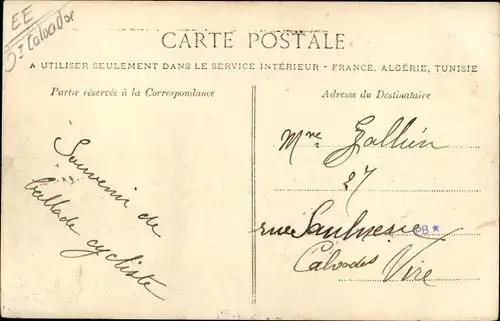 EE
Calvados
CARTE POSTALE
A UTILISER SEULEMENT DANS LE SERVICE INTÉRIEUR - FRANCE, ALGÉRIE, TUNISIE
Partie réservée à la Correspondance
Adresse du Destinataire
Souvenir de
ballade cycliste
Mme Gallien
27
rue Saulnerie
Calvados Vire